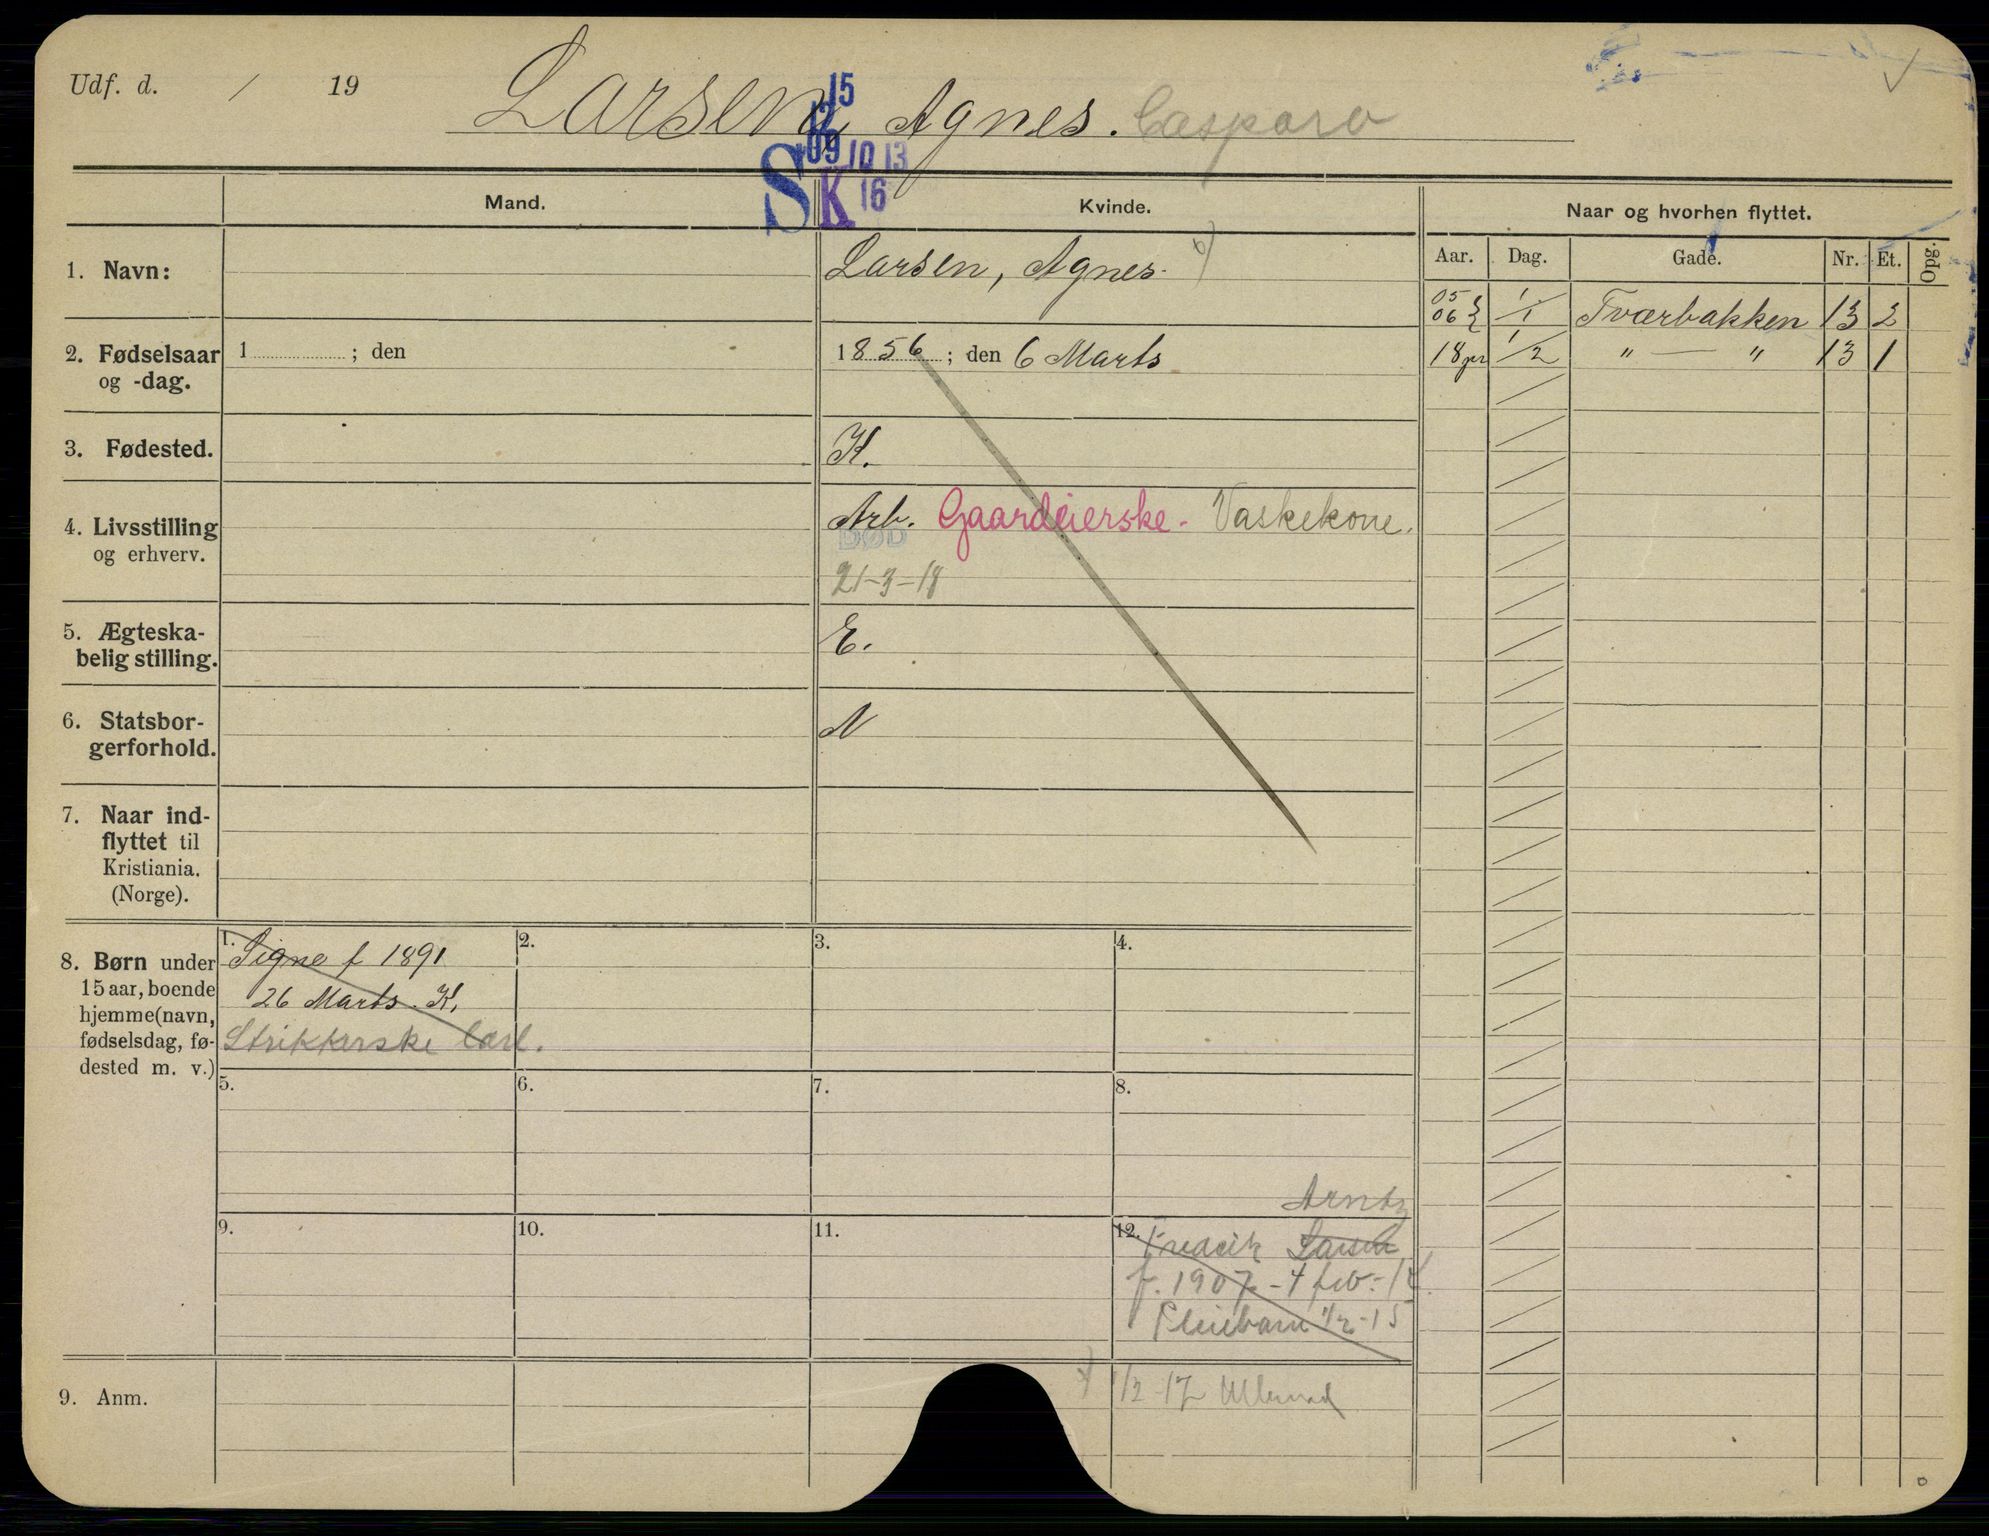 Udf. d. / 19
Larsen, Agnes. Caspara
15
12
09 10 13
S K 16
Mand.
Kvinde.
Naar og hvorhen flyttet.
Aar. Dag. Gade. Nr. Et. Opg.
1. Navn:
Larsen, Agnes.
05
06 1/1 Tværbakken 13 2
18 1/2 " — " 13 1
2. Fødselsaar
og -dag.
1 ; den
1856 ; den 6 Marts
3. Fødested.
K.
4. Livsstilling
og erhverv.
Arb. Gaardeierske. Vaskekone.
DØD
21-3-18
5. Ægteska-
belig stilling.
E.
6. Statsbor-
gerforhold.
N
7. Naar ind-
flyttet til
Kristiania.
(Norge).
8. Børn under
15 aar, boende
hjemme (navn,
fødselsdag, fø-
dested m. v.)
1. Signe f 1891
26 Marts. K.
Strikkerske
2.
3.
4.
5.
6.
7.
8.
9.
10.
11.
Arntz
12. Fredrik Larsen
f. 1907 - 4 feb. - 14.
Pleiebarn 1/2-15
9. Anm.
1/2 - 17